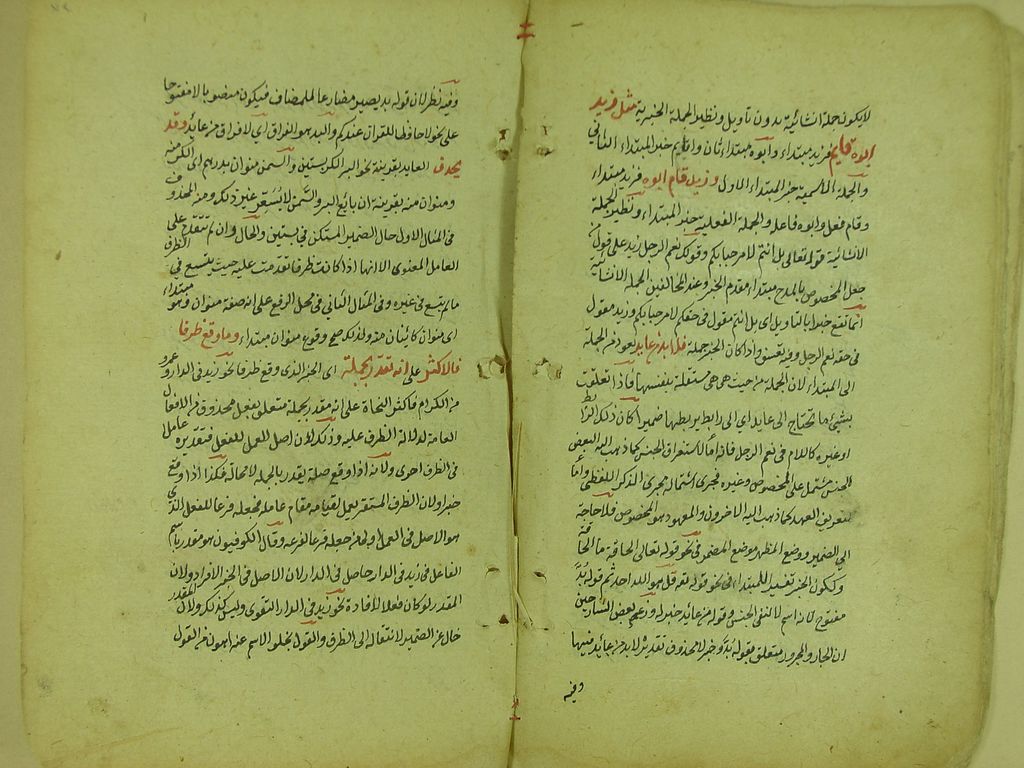 لا يكون جملة انشائية بدون تأويل ونظير الجملة الخبرية مثل زيد
ابوه قايم فزيد مبتداء وابوه مبتداء ثان وقايم خبر المبتداء الثاني
والجملة الاسمية خبر المبتداء الاول وزيد قام ابوه فزيد مبتداء
وقام فعل وابوه فاعل والجملة الفعلية خبر المبتداء ونظير الجملة
الانشائية قوله تعالى بل انتم لا مرحبا بكم وقولك نعم الرجل زيد على قول
جعل المخصوص بالمدح مبتداء مقدم الخبر وعند المخالفين الجملة الانشائية
انما تقع خبرا بالتاويل اى بل انتم مقول في حقكم لا مرحبا بكم وزيد مقول
في حقه نعم الرجل وفيه تعسف واذا كان الخبر جملة فلا بد من عايد يعود من الجملة
الى المبتداء لان الجملة من حيث هي هي مستقلة بنفسها فاذا تعلقت
بشئ ما تحتاج الى عايد اي الى رابط يربطها ضميرا كان ذلك الرابط
او غيره كاللام في نعم الرجل فانها لاستغراق الجنس كما ذهب اليه البعض
الجنس مشتمل على المخصوص وغيره فجرى اشتماله مجرى الذكر اللفظي واما
لتعريف العهد كما ذهب اليه الباخرون والمعهود هو المخصوص فلا حاجة
الي الضمير ووضع المظهر موضع المضمر في نحو قوله تعالى الحاقة ما الحاقة
وككون الخبر تفسيرا للمبتداء في نحو قوله تعه قل هو الله احد ثم قوله بد
مفتوح لانه اسم لا لنفي الجنس وقوله من عايد خبره وزعم بعض الشارحين
ان الجار والمجرور متعلق بقوله بد وخبر لا محذوف تقديره لا بد من عايد فيها
وفيه
وفيه نظر لان قوله بد يصير مضارعا للمضاف فيكون منصوبا لا مفتوحا
على نحو لا حافظا للقران عندكم والبد هو الفراق اي لا فراق من عايد وقد
يحذف العايد بقرينة نحو البر الكر بستين والسمن منوان بدرهم اي الكر منه
ومنوان منه بقرينة ان بائع البر والسمن لا يسعر غير ذلك ومنه المحذوف
في المثال الاول حال الضمير المستكن في بستين والحال وان لم تتقدم على
العامل المعنوي الا انها اذا كانت ظرفا تقدمت عليه حيث يتسع في الظرف
ما لم يتسع في غيره وفي المثال الثاني في محل الرفع على انه صفة منوان وهو مبتداء
اى منوان كائنان منه ولذلك صح وقوع منوان مبتداء وما وقع ظرفا
فالاكثر على انه مقدر بجملة اى الخبر الذى وقع ظرفا نحو زيد في الدار وعمرو
من الكرام فاكثر النحاة على انه مقدر بجملة متعلق بفعل محذوف من الافعال
العامة لدلالة الظرف عليه وذلك لان اصل العمل للفعل فتقديره عامل
في الظرف احرى ولانه اذا وقع صلة يقدر بالجملة لا محالة فكذا اذا وقع
خبرا ولان الظرف المستقر يعمل لقيامه مقام عامله فجعله فرعا للفعل الذي
هو الاصل في العمل اولى من جعله فرعا لفرعه وقال الكوفيون هو مقدر باسم
الفاعل في زيد في الدار حاصل في الدار لان الاصل في الخبر الافراد ولان
المقدر لو كان فعلا لافادة نحو زيد في الدار التقوى وليس كذلك ولان المقدر
خال عن الضمير لانتقاله الى الظرف والقول بخلو الاسم عنه اهون من القول